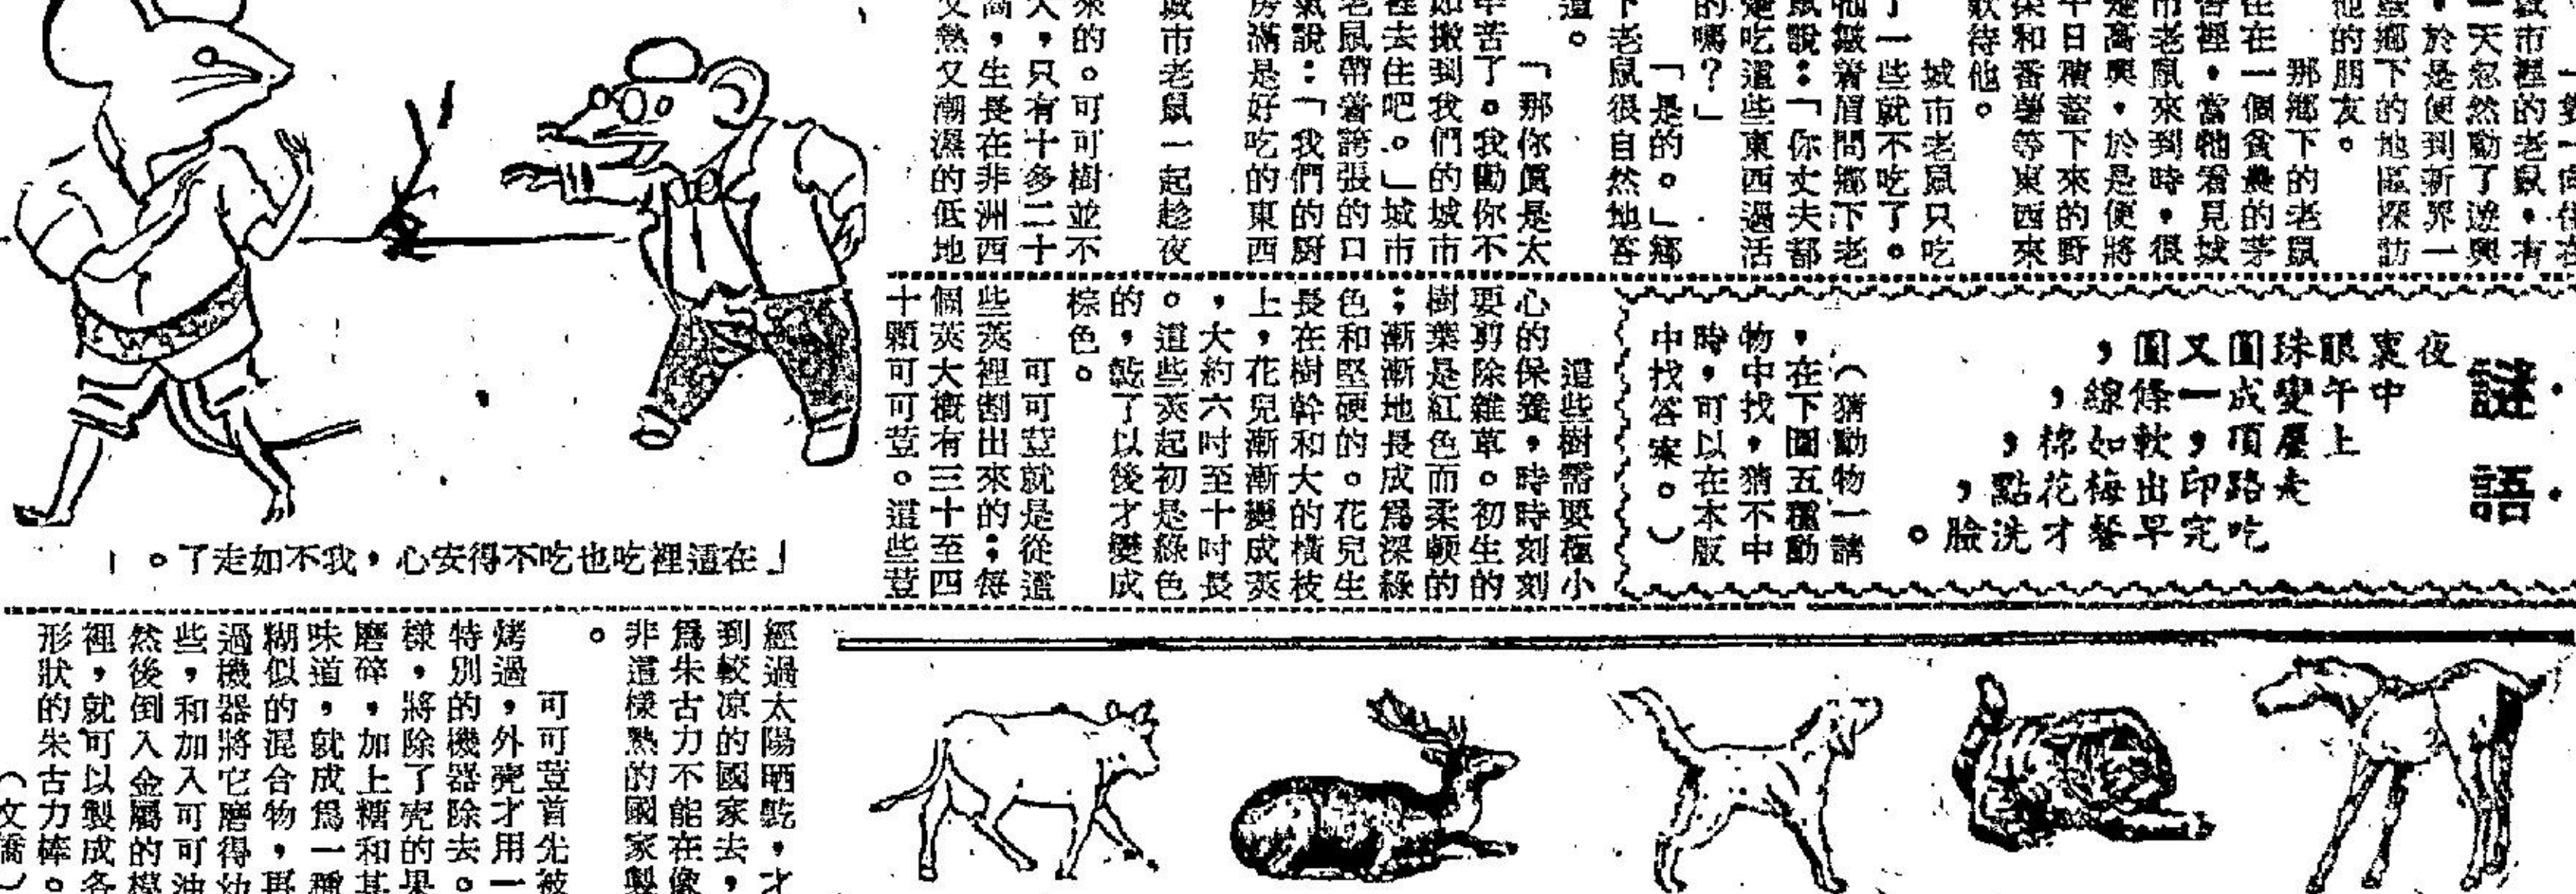 一隻一向住在
城市裡的老鼠，有
一天忽然動了遊興
，於是便到新界一
處鄉下的地區探訪
他的朋友。
那鄉下的老鼠
住在一個貧農的茅
舍裡，當牠看見城
市老鼠來到時，很
是高興，於是便將
平日積蓄下來的野
菜和番薯等東西來
款待他。
城市老鼠只吃
了一些就不吃了。
牠皺着眉問鄉下老
鼠說：「你丈夫都
是吃這些東西過活
的嗎？」
「是的。」鄉
下老鼠很自然地答
道。
「那你眞是太
辛苦了。我勸你不
如搬到我們的城市
裡去住吧。」城市
老鼠帶着誇張的口
氣說：「我們的厨
房滿是好吃的東西
城市老鼠一起趁夜
來的。可可樹並不
大，只有十多二十
高，生長在非洲西
又熱又潮濕的低地
謎語
夜裏眼珠圓又圓，
中午變成一條線，
上屋頂，軟如棉，
走路印出梅花點，
吃完早餐才洗臉。
（猜動物一請
，在下圖五種動
物中找，猜不中
時，可以在本版
中找答案。）
這些樹需要極小
心的保養，時時刻刻
要剪除雜草。初生的
樹葉是紅色而柔輭的
；漸漸地長成爲深綠
色和堅硬的。花兒生
長在樹幹和大的橫枝
上，花兒漸漸變成莢
，大約六吋至十吋長
。這些莢起初是綠色
的，乾了以後才變成
棕色。
可可荳就是從這
些莢裡割出來的；每
個莢大概有三十至四
十顆可可荳。這些荳
「在這裡吃也吃不得安心，我不如走了。」
經過太陽晒乾，才
到較凉的國家去，
爲朱古力不能在像
非這樣熱的國家製
。
可可荳首先被
烤過，外壳才用一
特別的機器除去。
樣，將除了壳的果
磨碎，加上糖和其
味道，就成爲一種
糊似的混合物，再
過機器將它磨得幼
些，和加入可可油
然後倒入金屬的模
裡，就可以製成各
形狀的朱古力棒。
（文僑）